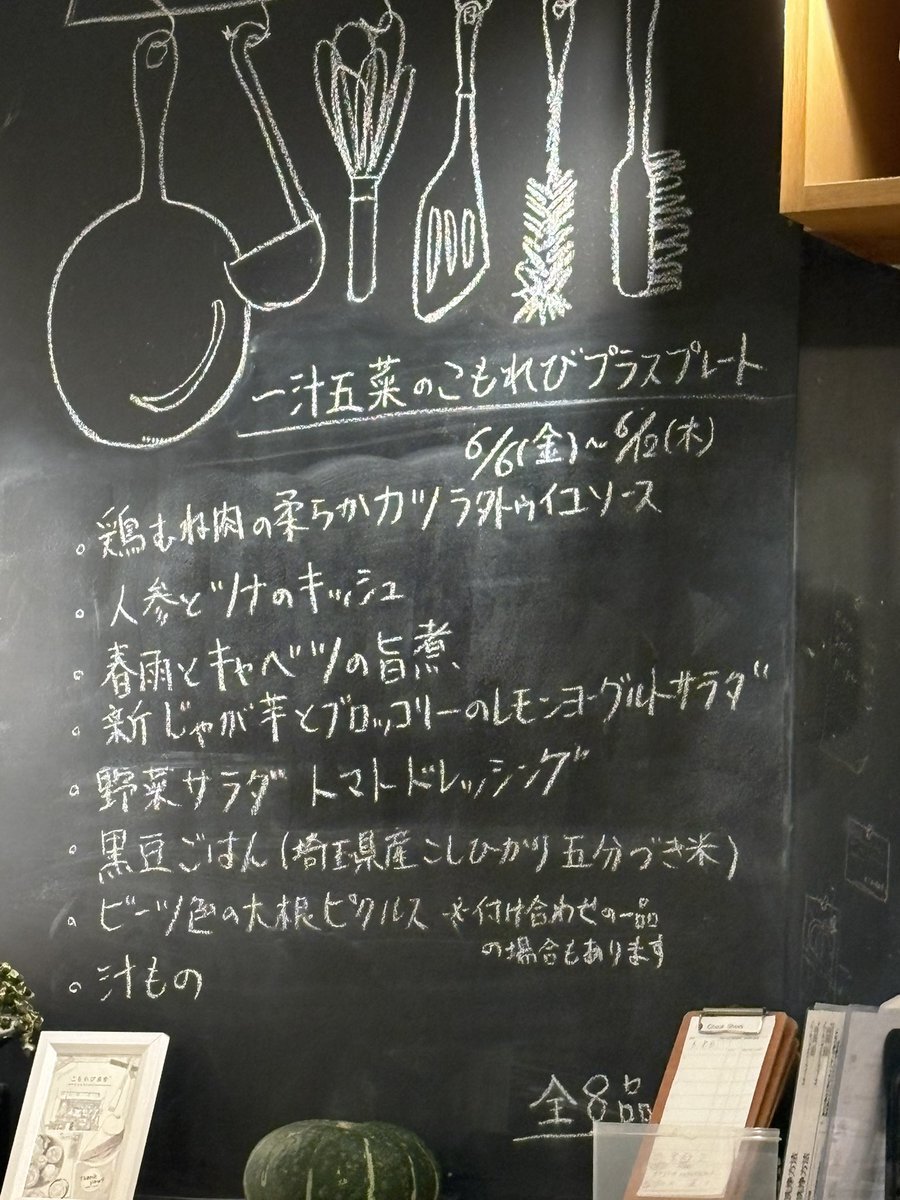 一汁五菜のこもれびプラスプレート
6/6(金)~6/12(木)
。鶏むね肉の柔らかカツ ラタトゥイユソース
。人参とツナのキッシュ
。春雨とキャベツの旨煮
。新じゃが芋とブロッコリーのレモンヨーグルトサラダ
。野菜サラダ トマトドレッシング
。黒豆ごはん(埼玉県産こしひかり 五分づき米)
。ビーツ色の大根ピクルス ※付け合わせの一品
の場合もあります
。汁もの
全8品
Check Sheet
こもれび食堂